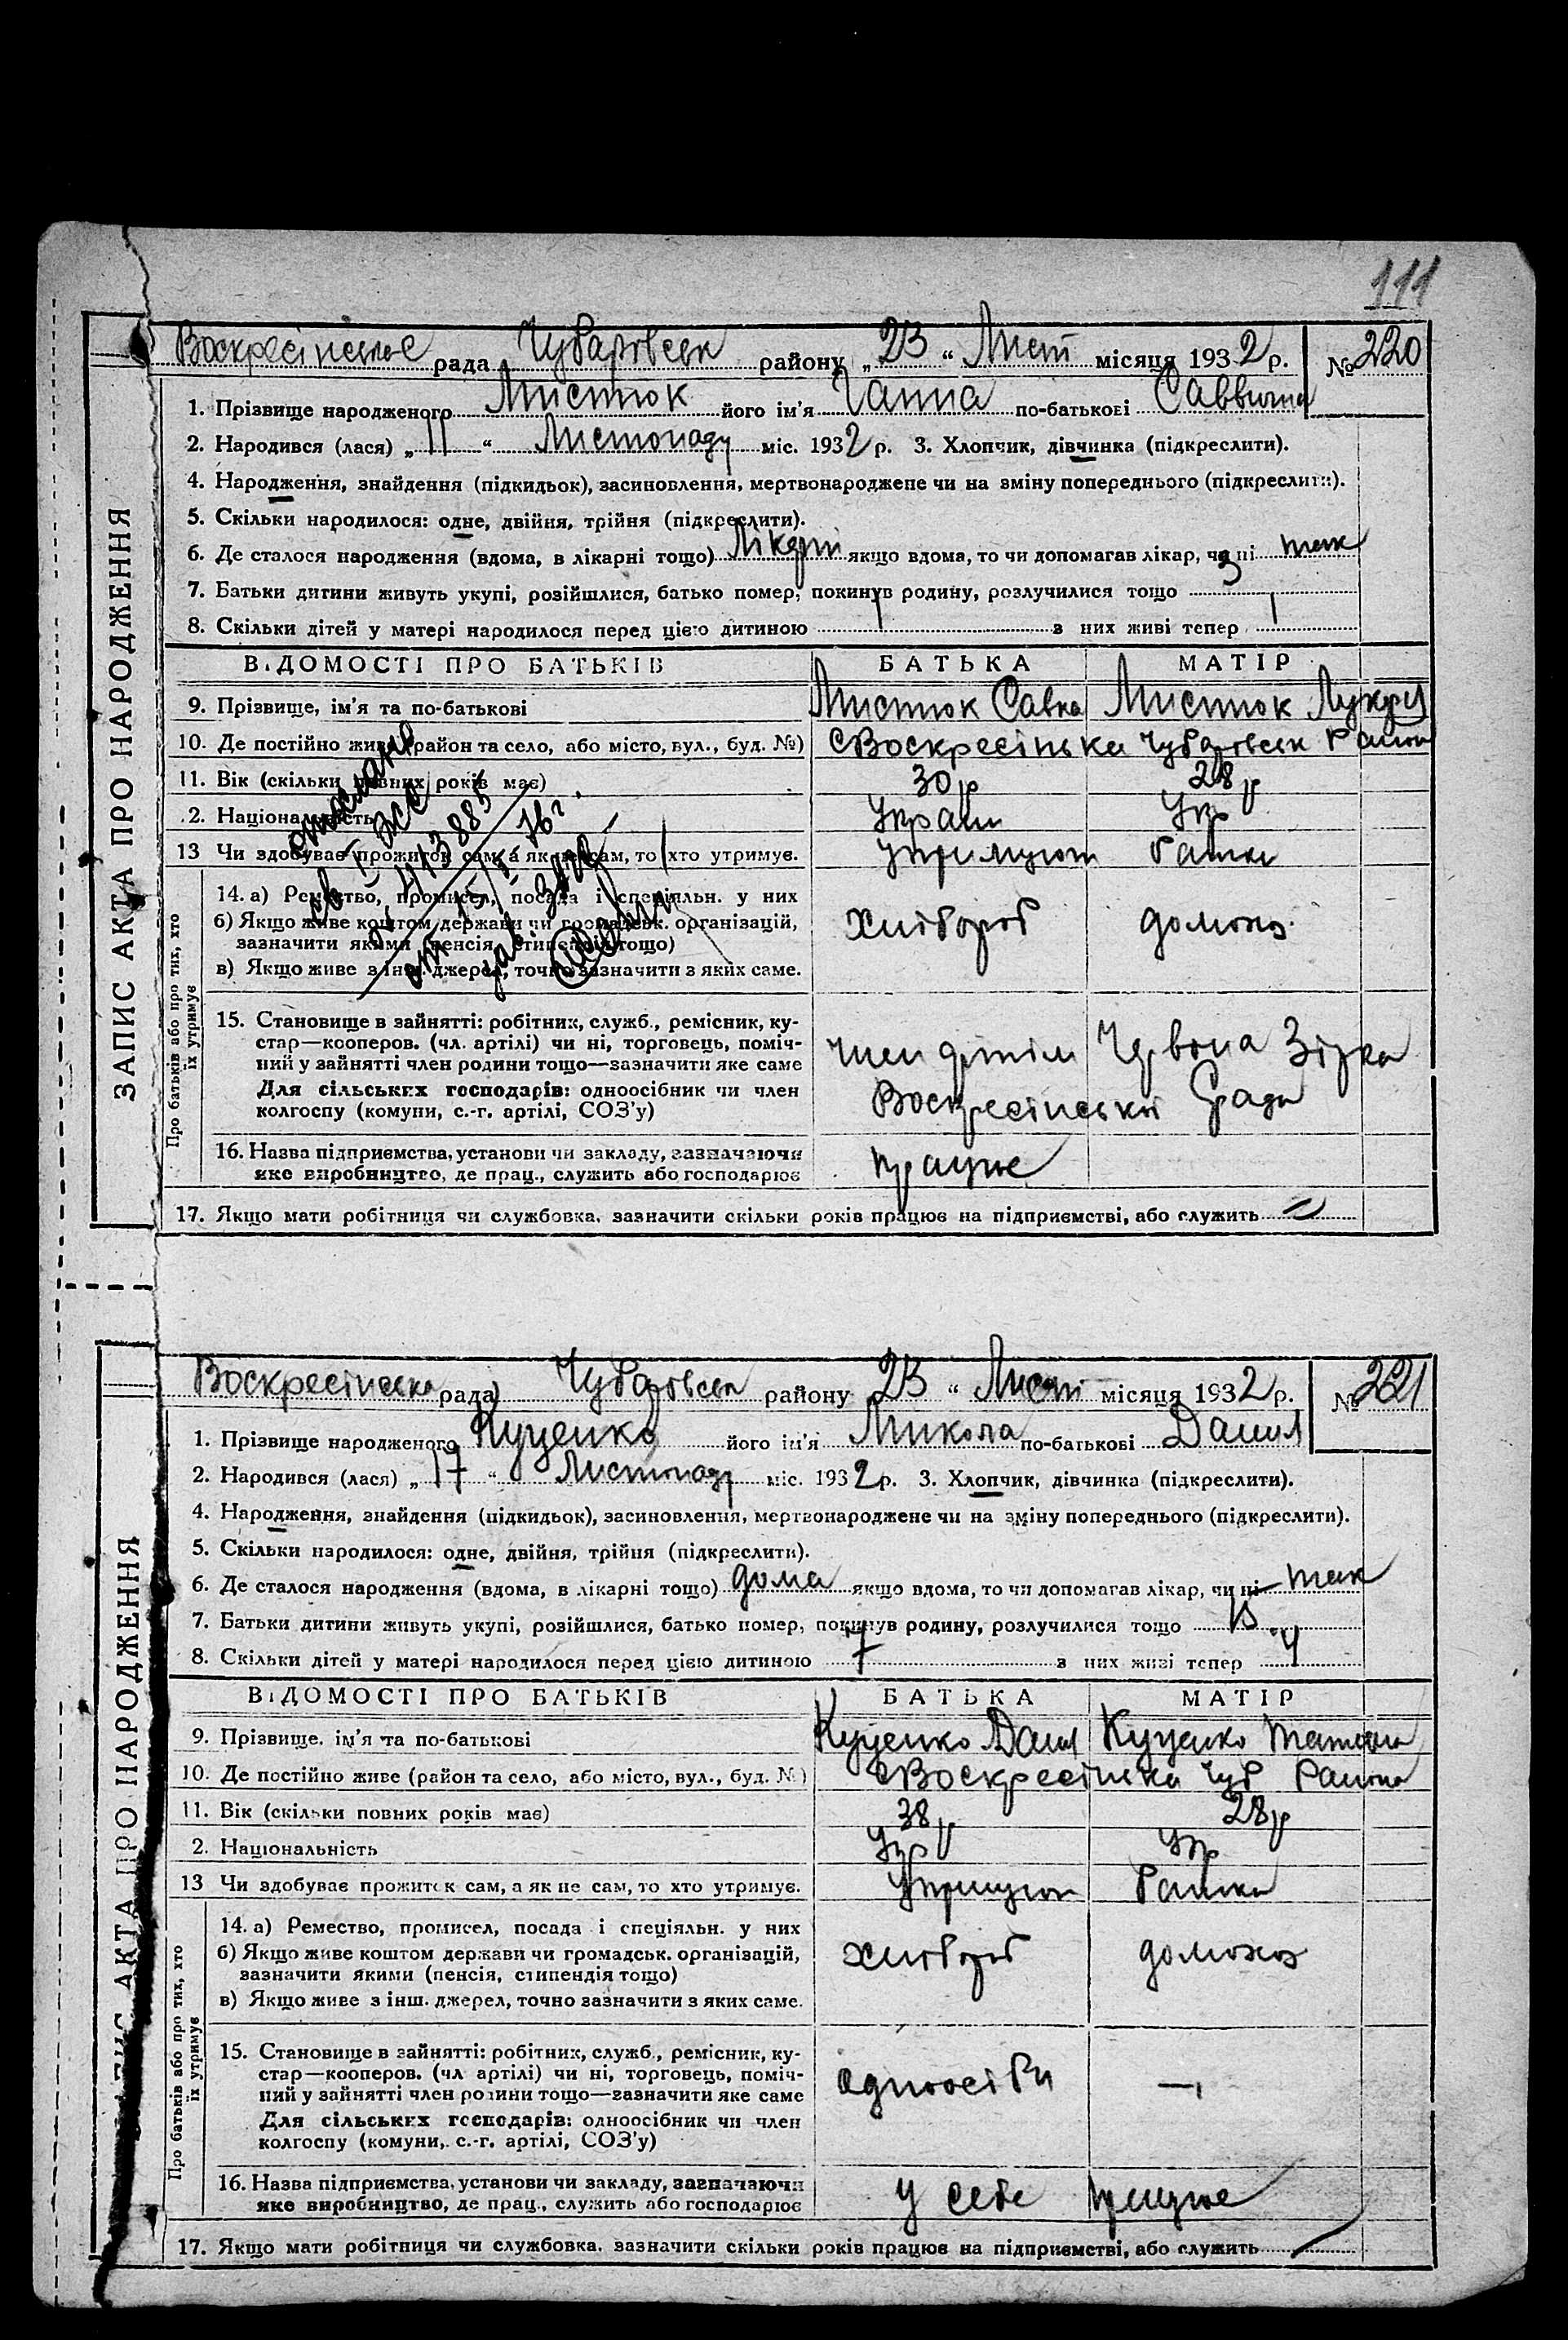 111
ЗАПИС АКТА ПРО НАРОДЖЕННЯ
рада Чубарівськ району „23“ Лист місяця 1932 р. № 220
1. Прізвище народженого Мистюк його ім'я Ганна по-батькові Саввична
2. Народився (лася) „11“ Листопаду міс. 1932 р. 3. Хлопчик, дівчинка (підкреслити).
4. Народження, знайдення (підкидьок), засиновлення, мертвонароджене чи на зміну попереднього (підкреслити).
5. Скільки народилося: одне, двійня, трійня (підкреслити).
6. Де сталося народження (вдома, в лікарні тощо) якщо вдома, то чи допомагав лікар, чи ні так
7. Батьки дитини живуть укупі, розійшлися, батько помер, покинув родину, розлучилися тощо
8. Скільки дітей у матері народилося перед цією дитиною 1 з них живі тепер 1
ВІДОМОСТІ ПРО БАТЬКІВ БАТЬКА МАТІР
9. Прізвище, ім'я та по-батькові Мистюк Савка Мистюк
10. Де постійно живе (район та село, або місто, вул., буд. №) с Воскресінька Чубарівськ Район
11. Вік (скільки повних років має) 30 р 28 р
2. Національність Украін Укр
13 Чи здобуває прожиток сам, а як не сам, то хто утримує.
Про батьків або про тих, хто їх утримує
14. а) Ремество, промисел, посада і спеціяльн. у них
б) Якщо живе коштом держави чи громадськ. організацій, хлібороб домохоз
зазначити якими (пенсія, стипендія тощо)
в) Якщо живе з інш. джерел, точно зазначити з яких саме.
15. Становище в зайнятті: робітник, служб., ремісник, ку-
стар—кооперов. (чл. артілі) чи ні, торговець, поміч- член артіли Червона Зірка
ний у зайнятті член родини тощо—зазначити яке саме
Для сільських господарів: одноосібник чи член Воскресінської
колгоспу (комуни, с.-г. артілі, СОЗ'у)
16. Назва підприємства, установи чи закладу, зазначаючи працює
яке виробництво, де прац., служить або господарює
17. Якщо мати робітниця чи службовка, зазначити скільки років працює на підприємстві, або служить
ЗАПИС АКТА ПРО НАРОДЖЕННЯ
Воскресінська рада Чубарівськ району 23 “ Лист місяця 1932 р. № 221
1. Прізвище народженого Куценко його ім'я Микола по-батькові Данил
2. Народився (лася) „17“ Листопаду міс. 1932 р. 3. Хлопчик, дівчинка (підкреслити).
4. Народження, знайдення (підкидьок), засиновлення, мертвонароджене чи на зміну попереднього (підкреслити).
5. Скільки народилося: одне, двійня, трійня (підкреслити).
6. Де сталося народження (вдома, в лікарні тощо) дома якщо вдома, то чи допомагав лікар, чи ні так
7. Батьки дитини живуть укупі, розійшлися, батько помер, покинув родину, розлучилися тощо
8. Скільки дітей у матері народилося перед цією дитиною 7 з них живі тепер 4
ВІДОМОСТІ ПРО БАТЬКІВ БАТЬКА МАТІР
9. Прізвище, ім'я та по-батькові Куценко Данил Куценко
10. Де постійно живе (район та село, або місто, вул., буд. №) с Воскресінка Чуб Района
11. Вік (скільки повних років має) 38 р 28 р
2. Національність Укр Укр
13 Чи здобуває прожиток сам, а як не сам, то хто утримує.
Про батьків або про тих, хто їх утримує
14. а) Ремество, промисел, посада і спеціяльн. у них
б) Якщо живе коштом держави чи громадськ. організацій, хлібороб домохоз
зазначити якими (пенсія, стипендія тощо)
в) Якщо живе з інш. джерел, точно зазначити з яких саме.
15. Становище в зайнятті: робітник, служб., ремісник, ку-
стар—кооперов. (чл артілі) чи ні, торговець, поміч- одноосібн —
ний у зайнятті член родини тощо—зазначити яке саме
Для сільських господарів: одноосібник чи член
колгоспу (комуни, с.-г. артілі, СОЗ'у)
16. Назва підприємства, установи чи закладу, зазначаючи у себе працює
яке виробництво, де прац., служить або господарює
17. Якщо мати робітниця чи службовка, зазначити скільки років працює на підприємстві, або служить